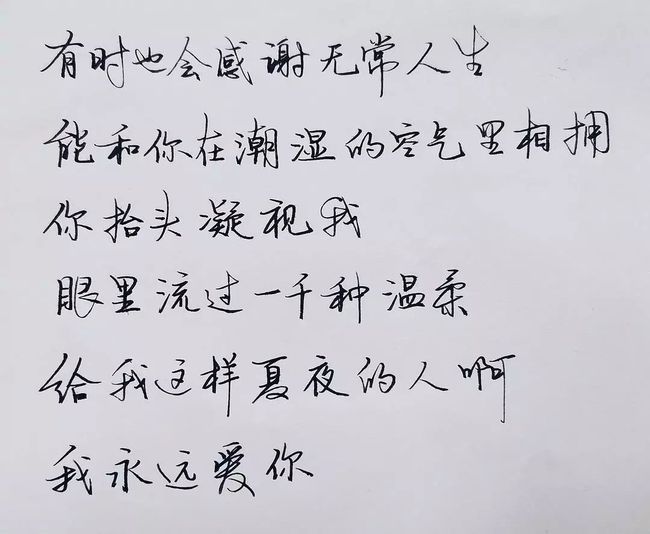 有时也会感谢无常人生
能和你在潮湿的空气里相拥
你抬头凝视我
眼里流过一千种温柔
给我这样夏夜的人啊
我永远爱你